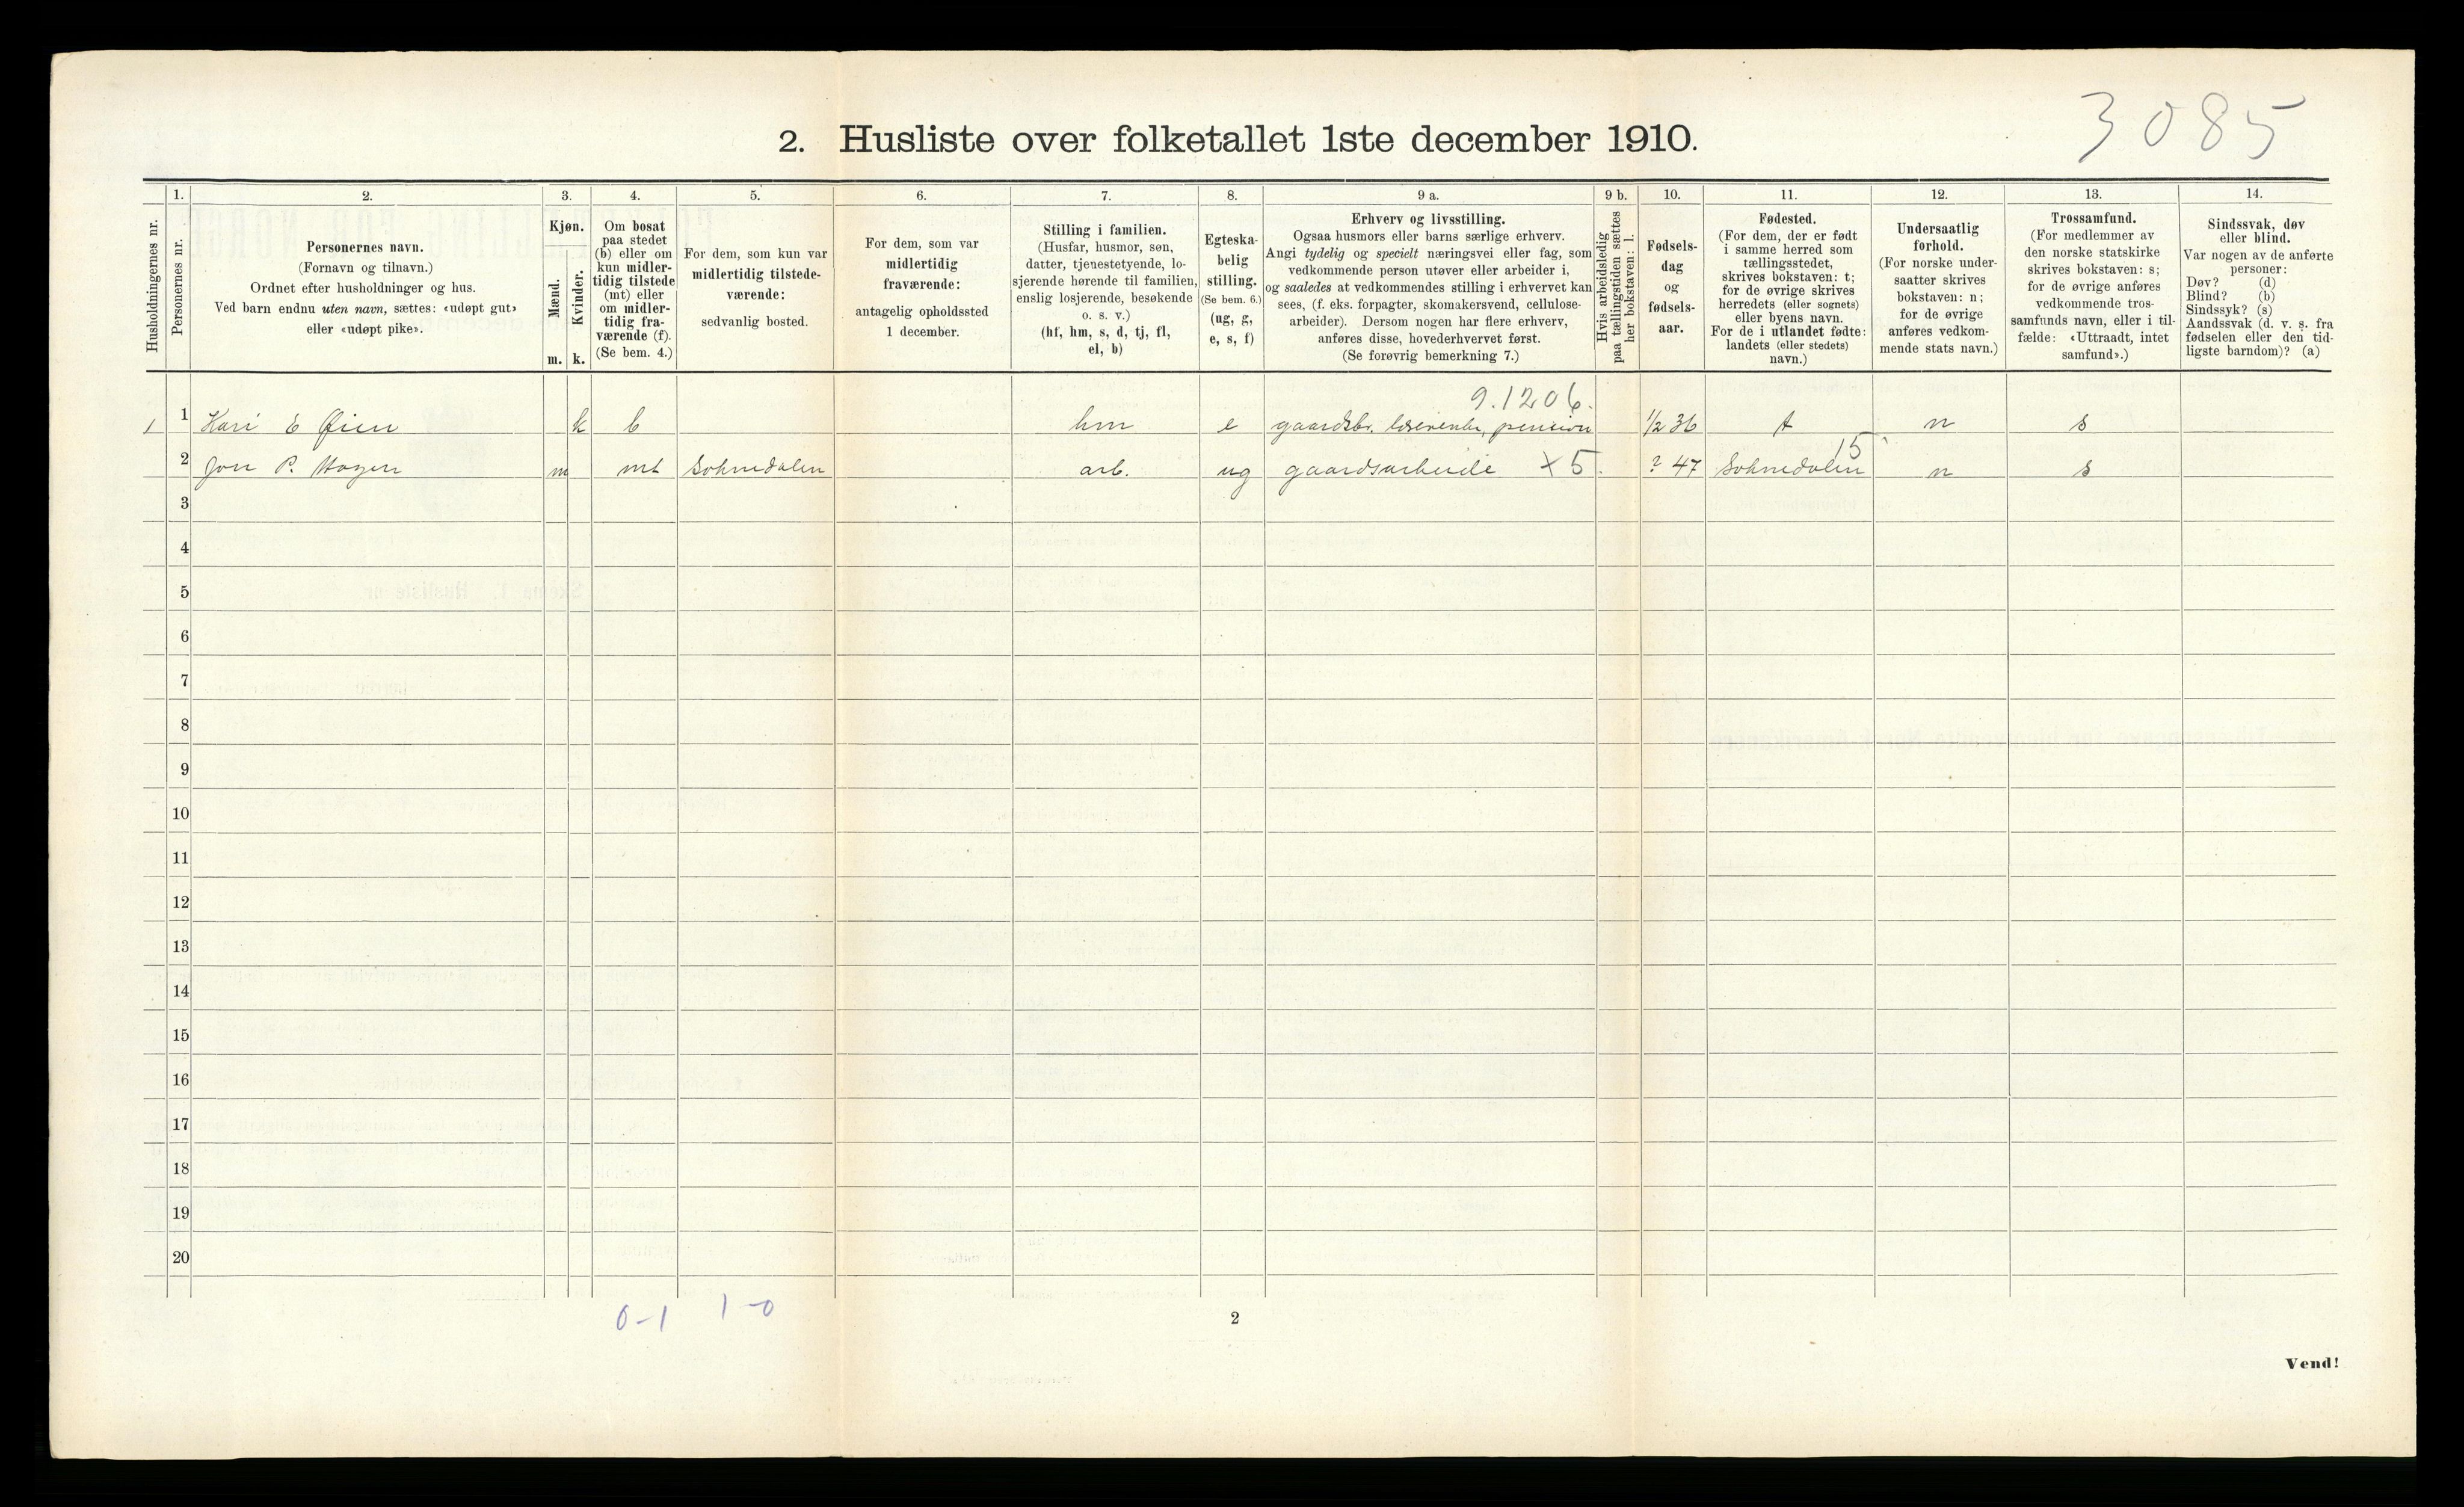 2. Husliste over folketallet 1ste december 1910.
3085
Husholdningernes nr.
1.
Personernes nr.
2.
Personernes navn.
(Fornavn og tilnavn.)
Ordnet efter husholdninger og hus.
Ved barn endnu uten navn, sættes: «udøpt gut»
eller «udøpt pike».
3.
Kjøn.
Mænd.
Kvinder.
m. k.
4.
Om bosat
paa stedet
(b) eller om
kun midler-
tidig tilstede
(mt) eller
om midler-
tidig fra-
værende (f).
(Se bem. 4.)
5.
For dem, som kun var
midlertidig tilstede-
værende:
sedvanlig bosted.
6.
For dem, som var
midlertidig
fraværende:
antagelig opholdssted
1 december.
7.
Stilling i familien.
(Husfar, husmor, søn,
datter, tjenestetyende, lo-
sjerende hørende til familien,
enslig losjerende, besøkende
o. s. v.)
(hf, hm, s, d, tj, fl,
el, b)
8.
Egteska-
belig
stilling.
(Se bem. 6.)
(ug, g,
e, s, f)
9 a.
Erhverv og livsstilling.
Ogsaa husmors eller barns særlige erhverv.
Angi tydelig og specielt næringsvei eller fag, som
vedkommende person utøver eller arbeider i,
og saaledes at vedkommendes stilling i erhvervet kan
sees, (f. eks. forpagter, skomakersvend, cellulose-
arbeider). Dersom nogen har flere erhverv,
anføres disse, hovederhvervet først.
(Se forøvrig bemerkning 7.)
9 b.
Hvis arbeidsledig
paa tællingstiden sættes
her bokstaven: l.
10.
Fødsels-
dag
og
fødsels-
aar.
11.
Fødested.
(For dem, der er født
i samme herred som
tællingsstedet,
skrives bokstaven: t;
for de øvrige skrives
herredets (eller sognets)
eller byens navn.
For de i utlandet fødte:
landets (eller stedets)
navn.)
12.
Undersaatlig
forhold.
(For norske under-
saatter skrives
bokstaven: n;
for de øvrige
anføres vedkom-
mende stats navn.)
13.
Trossamfund.
(For medlemmer av
den norske statskirke
skrives bokstaven: s;
for de øvrige anføres
vedkommende tros-
samfunds navn, eller i til-
fælde: «Uttraadt, intet
samfund».)
14.
Sindssvak, døv
eller blind.
Var nogen av de anførte
personer:
Døv? (d)
Blind? (b)
Sindssyk? (s)
Aandssvak (d. v. s. fra
fødselen eller den tid-
ligste barndom)? (a)
9.1206.
1 1 Kari E Øien k b hm e gaardsbr. pension 1/2 36 t n s
15
2 Jon P. Hagen m mt Soknedalen arb. ug gaardsarbeide X 5. ? 47 Soknedalen n s
3
4
5
6
7
8
9
10
11
12
13
14
15
16
17
18
19
20
0-1 1-0
2
Vend!